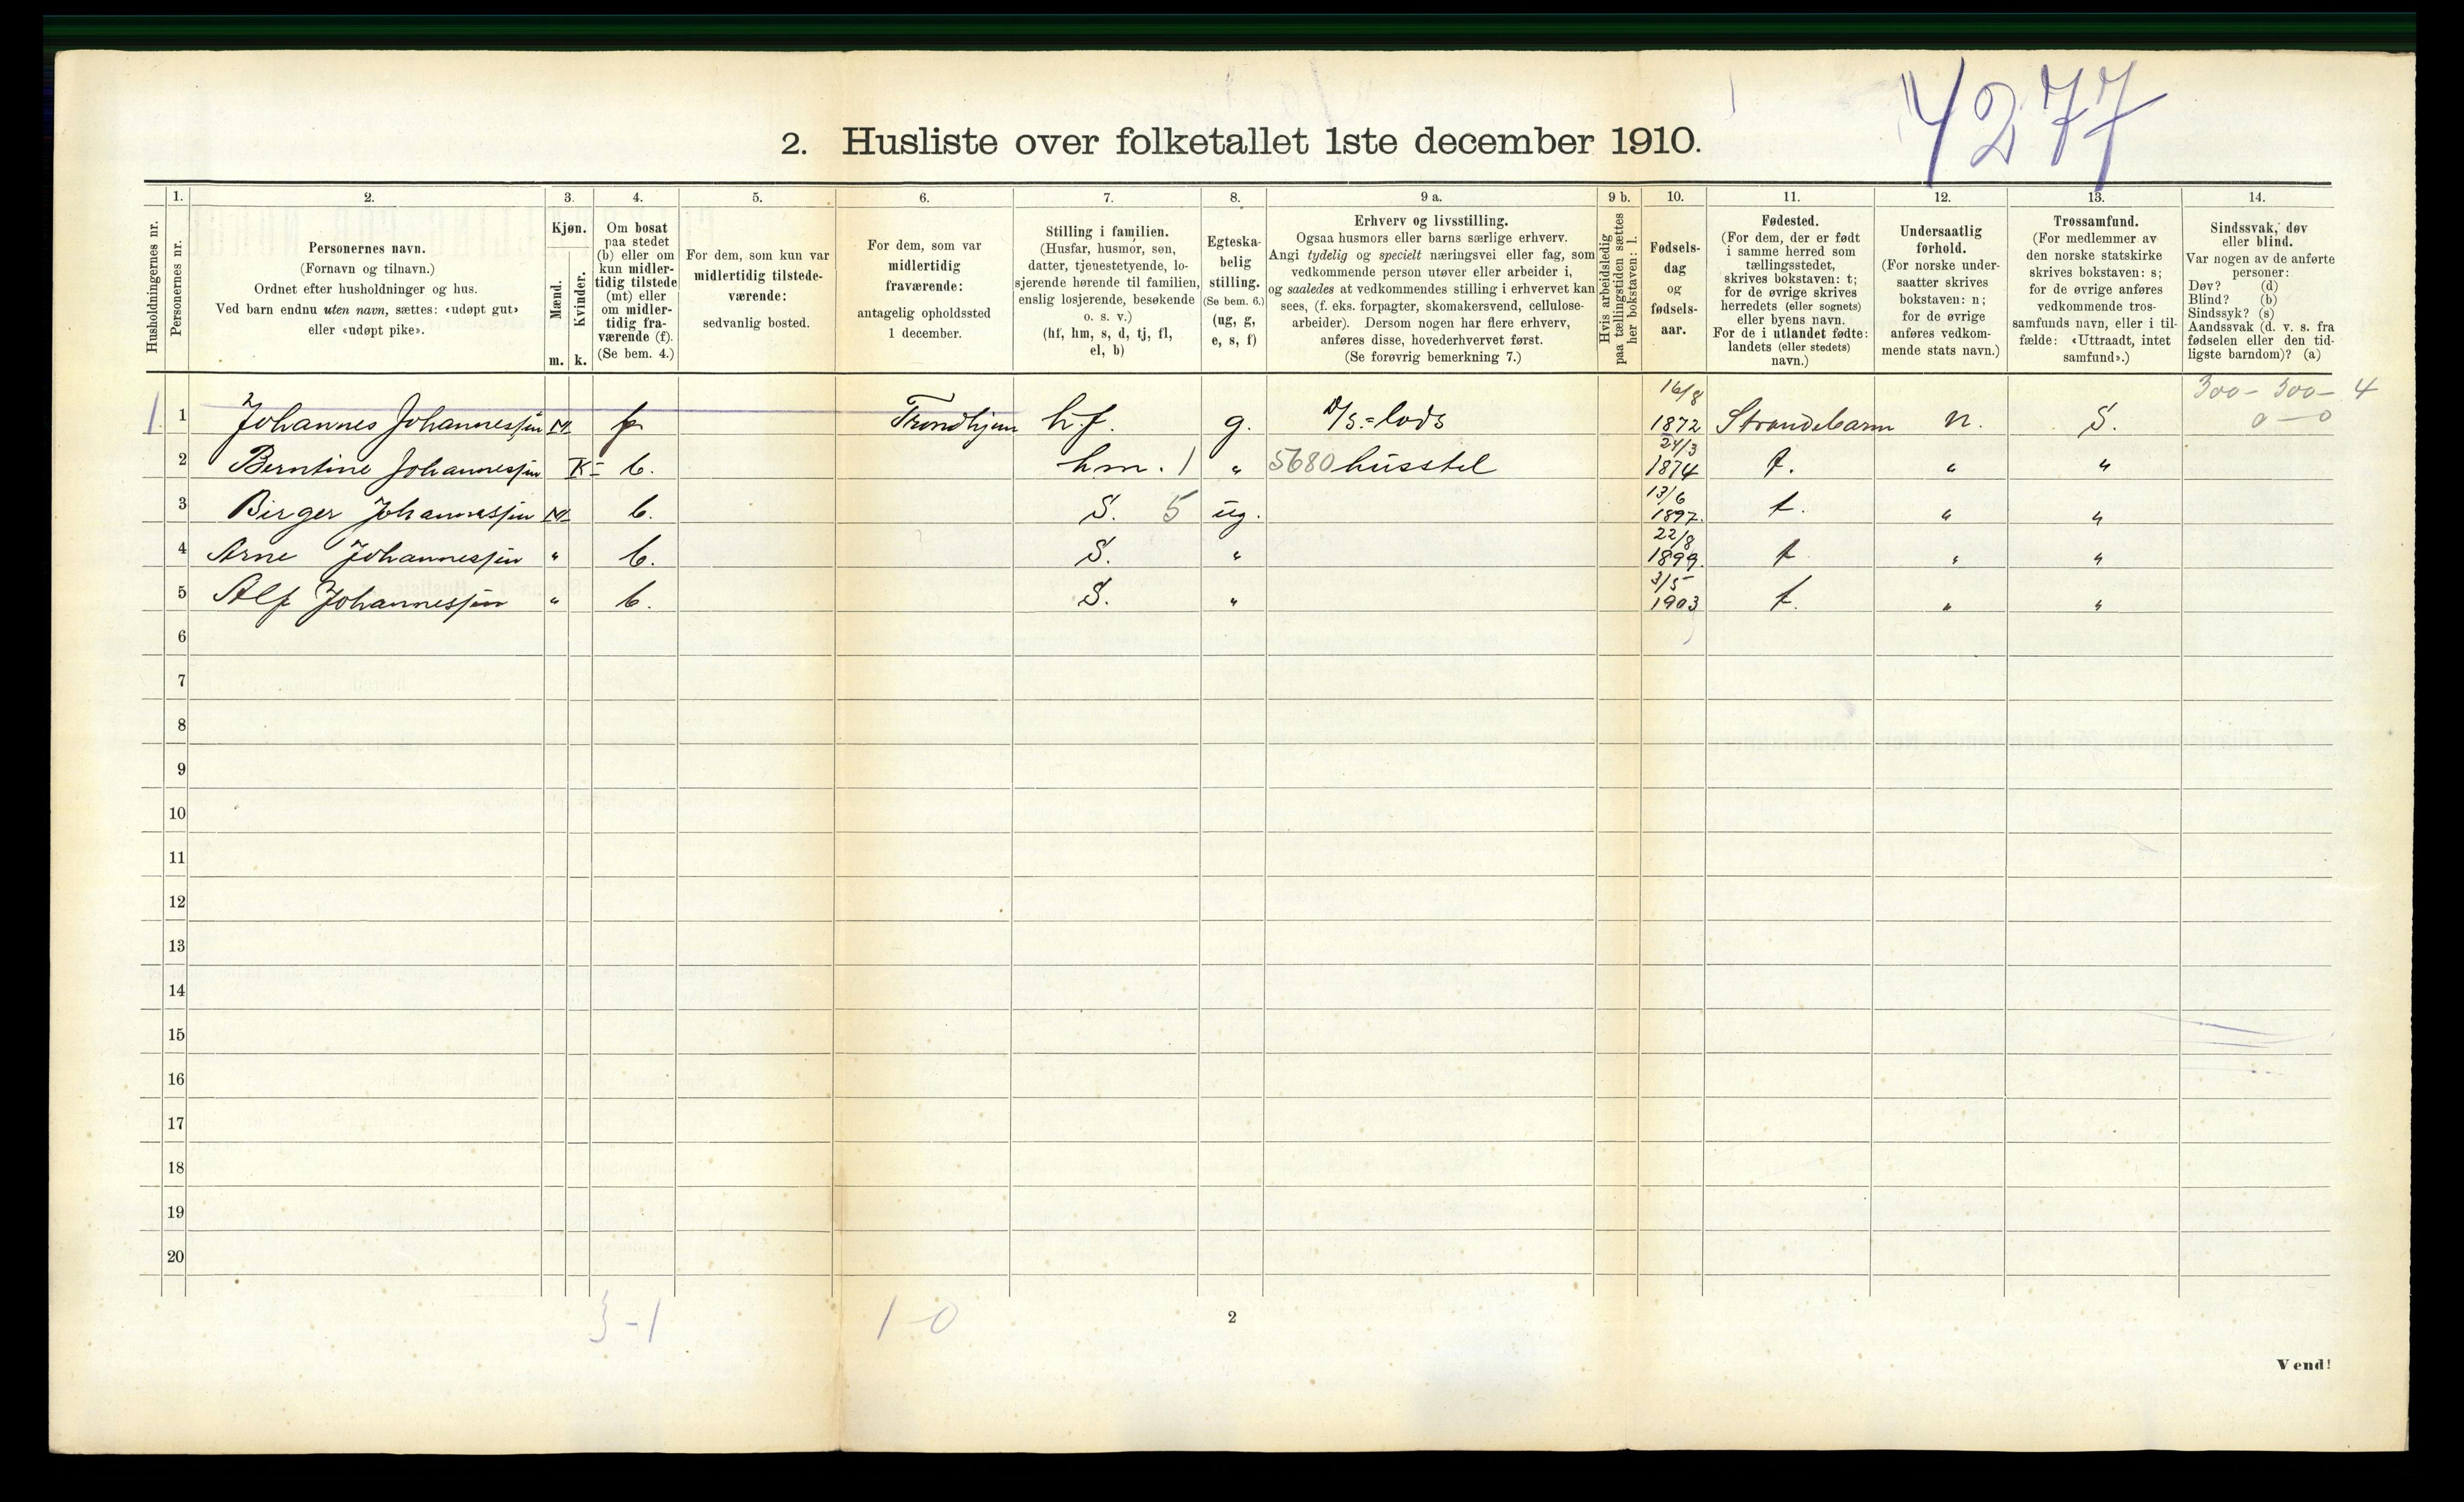 4277
2. Husliste over folketallet 1ste december 1910.
1. 2. 3. 4. 5. 6. 7. 8. 9 a. 9 b. 10. 11. 12. 13. 14.
Husholdningernes nr.
Personernes nr.
Personernes navn.
(Fornavn og tilnavn.)
Ordnet efter husholdninger og hus.
Ved barn endnu uten navn, sættes: «udøpt gut»
eller «udøpt pike».
Kjøn.
Mænd.
Kvinder.
m. k.
Om bosat
paa stedet
(b) eller om
kun midler-
tidig tilstede
(mt) eller
om midler-
tidig fra-
værende (f).
(Se bem. 4.)
For dem, som kun var
midlertidig tilstede-
værende:
sedvanlig bosted.
For dem, som var
midlertidig
fraværende:
antagelig opholdssted
1 december.
Stilling i familien.
(Husfar, husmor, søn,
datter, tjenestetyende, lo-
sjerende hørende til familien,
enslig losjerende, besøkende
o. s. v.)
(hf, hm, s, d, tj, fl,
el, b)
Egteska-
belig
stilling.
(Se bem. 6.)
(ug, g,
e, s, f)
Erhverv og livsstilling.
Ogsaa husmors eller barns særlige erhverv.
Angi tydelig og specielt næringsvei eller fag, som
vedkommende person utøver eller arbeider i,
og saaledes at vedkommendes stilling i erhvervet kan
sees, (f. eks. forpagter, skomakersvend, cellulose-
arbeider). Dersom nogen har flere erhverv,
anføres disse, hovederhvervet først.
(Se forøvrig bemerkning 7.)
Hvis arbeidsledig
paa tællingstiden sættes
her bokstaven: l.
Fødsels-
dag
og
fødsels-
aar.
Fødested.
(For dem, der er født
i samme herred som
tællingsstedet,
skrives bokstaven: t;
for de øvrige skrives
herredets (eller sognets)
eller byens navn.
For de i utlandet fødte:
landets (eller stedets)
navn.)
Undersaatlig
forhold.
(For norske under-
saatter skrives
bokstaven: n;
for de øvrige
anføres vedkom-
mende stats navn.)
Trossamfund.
(For medlemmer av
den norske statskirke
skrives bokstaven: s;
for de øvrige anføres
vedkommende tros-
samfunds navn, eller i til-
fælde: «Uttraadt, intet
samfund».)
Sindssvak, døv
eller blind.
Var nogen av de anførte
personer:
Døv? (d)
Blind? (b)
Sindssyk? (s)
Aandssvak (d. v. s. fra
fødselen eller den tid-
ligste barndom)? (a)
300 - 300 - 4
0 - 0
1 1 Johannes Johannessen M f Trondhjem h.f. g. D/S. = lods 16/8 1872 Strandebarm n. S.
2 Berntine Johannessen K b. hm. 1 " 5680 husstel 24/3 1874 t. " "
3 Birger Johannessen M b. S. 5 ug. 13/6 1897. t. " "
4 Arne Johannessen " b. S. " 22/8 1899. t " "
5 Alf Johannessen " b. S. " 3/5 1903 t. " "
6
7
8
9
10
11
12
13
14
15
16
17
18
19
20
3-1 1-0
2
Vend!